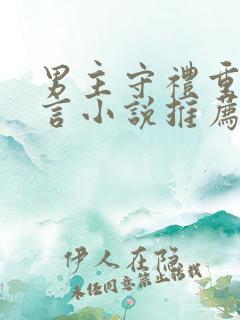 男主守禮重
言小說推薦
伊人在隐
未经同意禁止转载